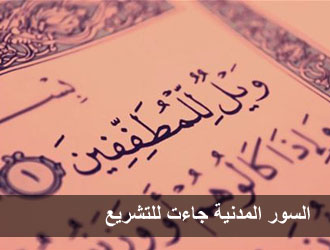 بِسْـ
وَيْلٌ لِّلْمُطَفِّفِينَ ١
وَإِذَا كَالُوهُمْ أَو
السور المدنية جاءت للتشريع